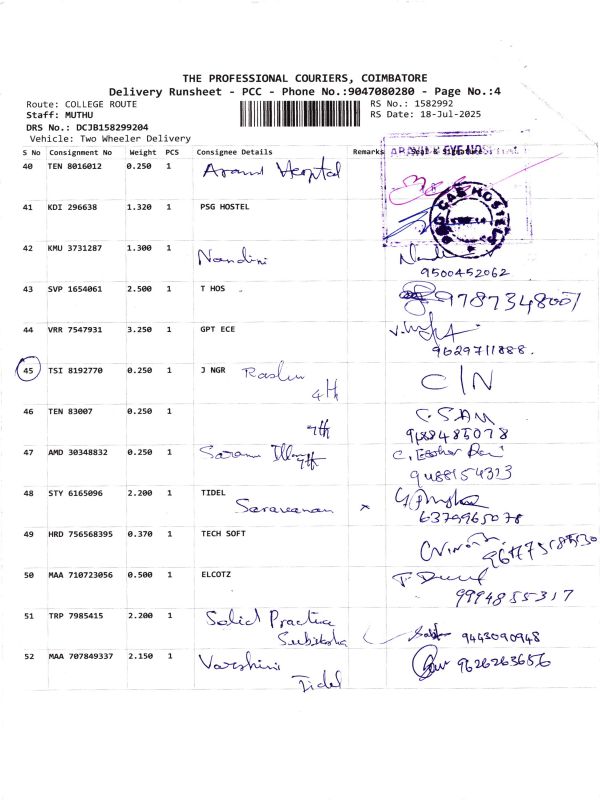 THE PROFESSIONAL COURIERS, COIMBATORE
Delivery Runsheet - PCC - Phone No.:9047080280 - Page No.:4
Route: COLLEGE ROUTE RS No.: 1582992
Staff: MUTHU RS Date: 18-Jul-2025
DRS No.: DCJB158299204
Vehicle: Two Wheeler Delivery
S No Consignment No Weight PCS Consignee Details Remarks Seal & Signature
40 TEN 8016012 0.250 1
41 KDI 296638 1.320 1 PSG HOSTEL
42 KMU 3731287 1.300 1 Nandini
9500452062
43 SVP 1654061 2.500 1 T HOS
44 VRR 7547931 3.250 1 GPT ECE
9629711888.
45 TSI 8192770 0.250 1 J NGR C/N
4th
46 TEN 83007 0.250 1
7th
47 AMD 30348832 0.250 1
7th
9488154323
48 STY 6165096 2.200 1 TIDEL
Saravanan x
6379965078
49 HRD 756568395 0.370 1 TECH SOFT
50 MAA 710723056 0.500 1 ELCOTZ
9994855317
51 TRP 7985415 2.200 1 Solid Practice
Subiksha 9443090948
52 MAA 707849337 2.150 1 Varshini 9626263656
Tidel